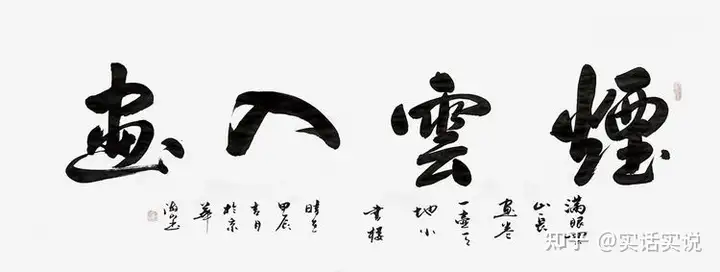 煙雲入畫
滿眼雲
山長
畫卷
一壺天
地小
書樓
時在
甲辰
吉月
於京
華
知乎 @实话实说